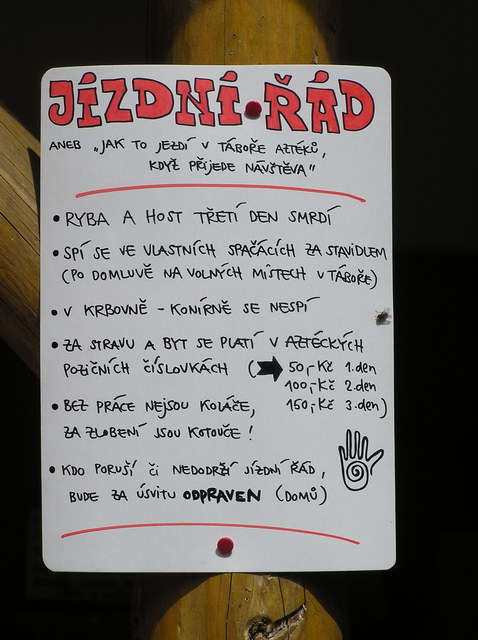 JÍZDNÍ ŘÁD
ANEB „JAK TO JEZDÍ V TÁBOŘE AZTÉKŮ,
KDYŽ PŘIJEDE NÁVŠTĚVA"
• RYBA A HOST TŘETÍ DEN SMRDÍ
• SPÍ SE VE VLASTNÍCH SPAČÁCÍCH ZA STAVIDLEM
(PO DOMLUVĚ NA VOLNÝCH MÍSTECH V TÁBOŘE)
• V KRBOVNĚ - KONÍRNĚ SE NESPÍ
• ZA STRAVU A BYT SE PLATÍ V AZTÉCKÝCH
POZIČNÍCH ČÍSLOVKÁCH (➡ 50,- Kč 1. den
100,- Kč 2. den
150,- Kč 3. den)
• BEZ PRÁCE NEJSOU KOLÁČE,
ZA ZLOBENÍ JSOU KOTOUČE!
• KDO PORUŠÍ ČI NEDODRŽÍ JÍZDNÍ ŘÁD,
BUDE ZA ÚSVITU ODPRAVEN (DOMŮ)